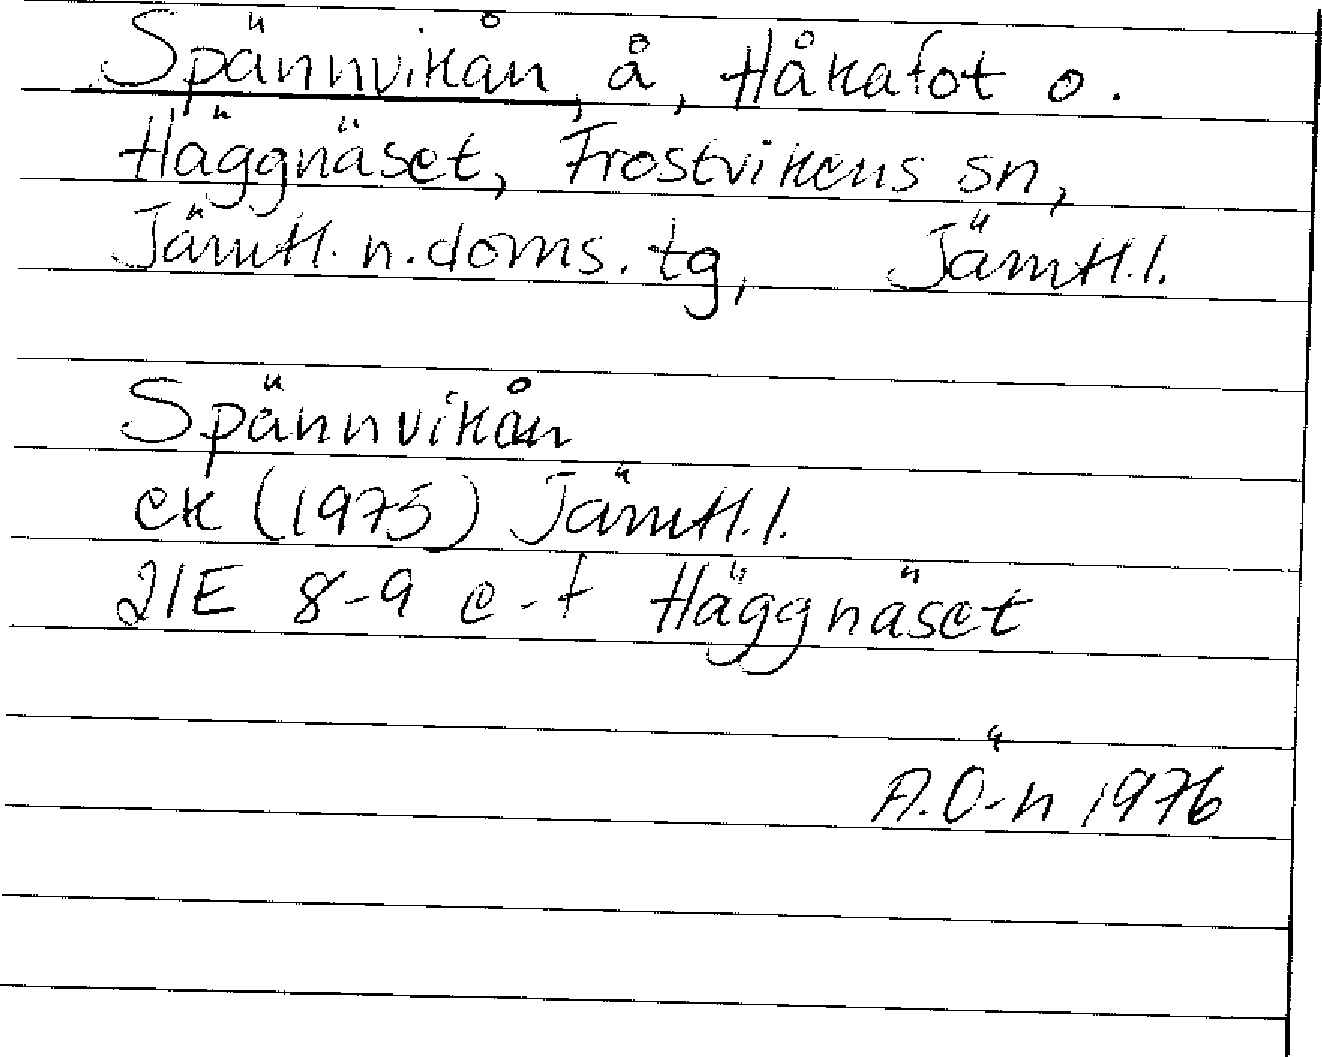 Spännvikån, å, Håkafot o.
Häggnäset, Frostvikens sn,
Jämtl. n. doms. tg, Jämtl. l.
Spännvikån
ek (1975) Jämtl. l.
21E 8-9 e-f Häggnäset
A.Ö-n 1976